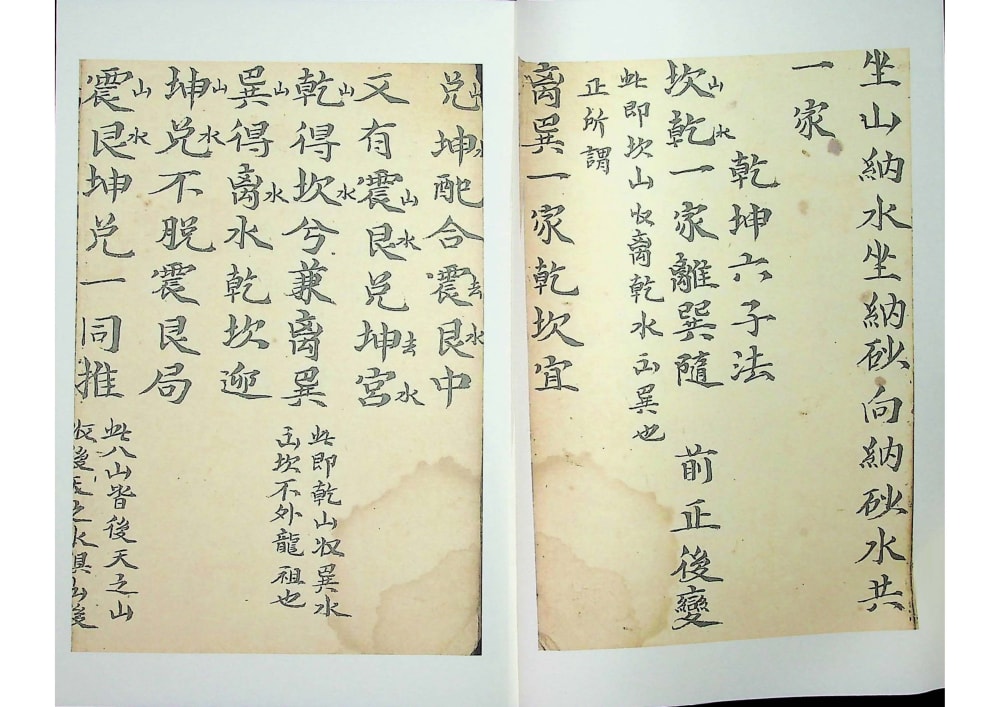 坐山納水坐納砂向納砂水共
一家
乾坤六子法
坎山乾水一家離巽隨 前正後變
此即坎山收离乾水出巽也
正所謂
离巽一家乾坎宜
兑山坤水配合震去艮水中
又有震山艮水兑坤去宮水
乾山得坎水兮兼离巽 此即乾山收巽水
出坎不外龍祖也
巽山得离水水乾坎迎
坤山兑水不脱震艮局
震山艮水坤兑一同推 此八山皆後天之山
收後天之水俱出後